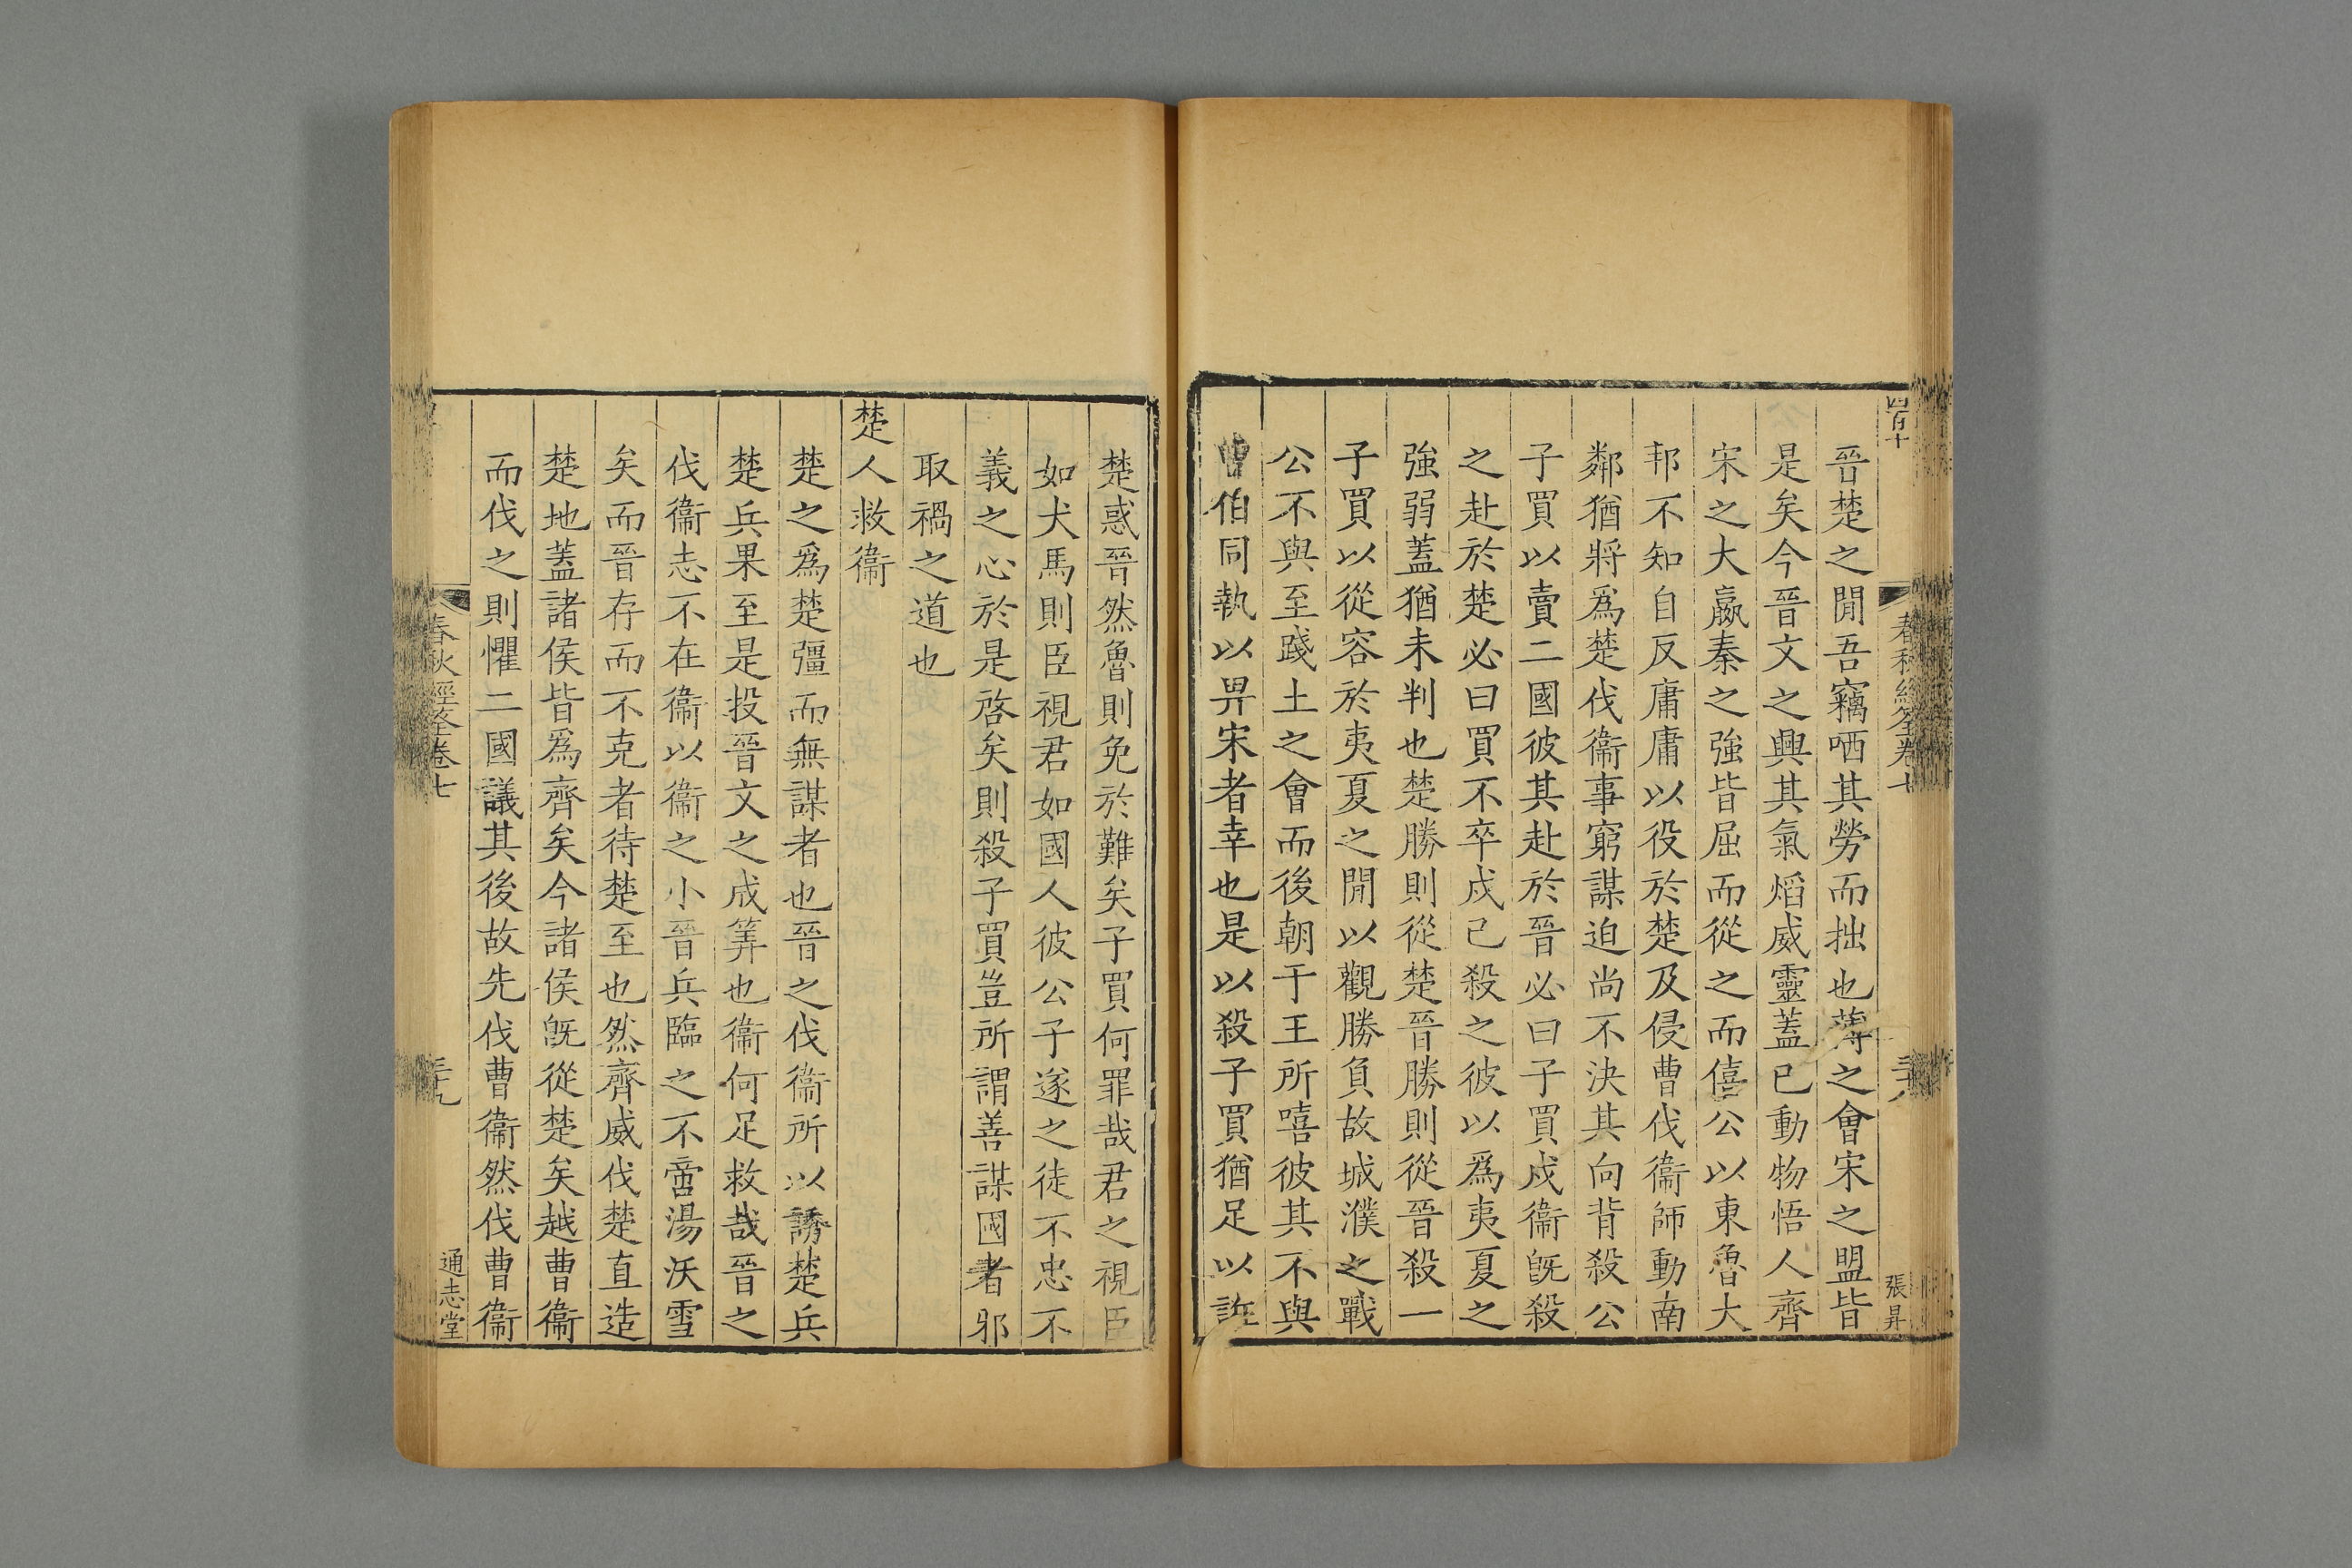 四百十
春秋經筌卷七
張昇
晉楚之閒吾竊哂其勞而拙也薄之會宋之盟皆
是矣今晉文之興其氣熖威靈蓋已動物悟人齊
宋之大嬴秦之強皆屈而從之而僖公以東魯大
邦不知自反庸庸以役於楚及侵曹伐衞師動南
鄰猶將爲楚伐衞事窮謀迫尚不決其向背殺公
子買以賣二國彼其赴於晉必曰子買戍衞旣殺
之赴於楚必曰買不卒戍已殺之彼以爲夷夏之
強弱蓋猶未判也楚勝則從楚晉勝則從晉殺一
子買以從容於夷夏之閒以觀勝負故城濮之戰
公不與至踐土之會而後朝于王所嘻彼其不與
曹伯同執以畀宋者幸也是以殺子買猶足以詐
楚惑晉然魯則免於難矣子買何罪哉君之視臣
如犬馬則臣視君如國人彼公子遂之徒不忠不
義之心於是啓矣則殺子買豈所謂善謀國者邪
取禍之道也
楚人救衞
楚之爲楚彊而無謀者也晉之伐衞所以誘楚兵
楚兵果至是投晉文之成筭也衞何足救哉晉之
伐衞志不在衞以衞之小晉兵臨之不啻湯沃雪
矣而晉存而不克者待楚至也然齊威伐楚直造
楚地蓋諸侯皆爲齊矣今諸侯旣從楚矣越曹衞
而伐之則懼二國議其後故先伐曹衞然伐曹衞
春秋經筌卷七
三九
通志堂